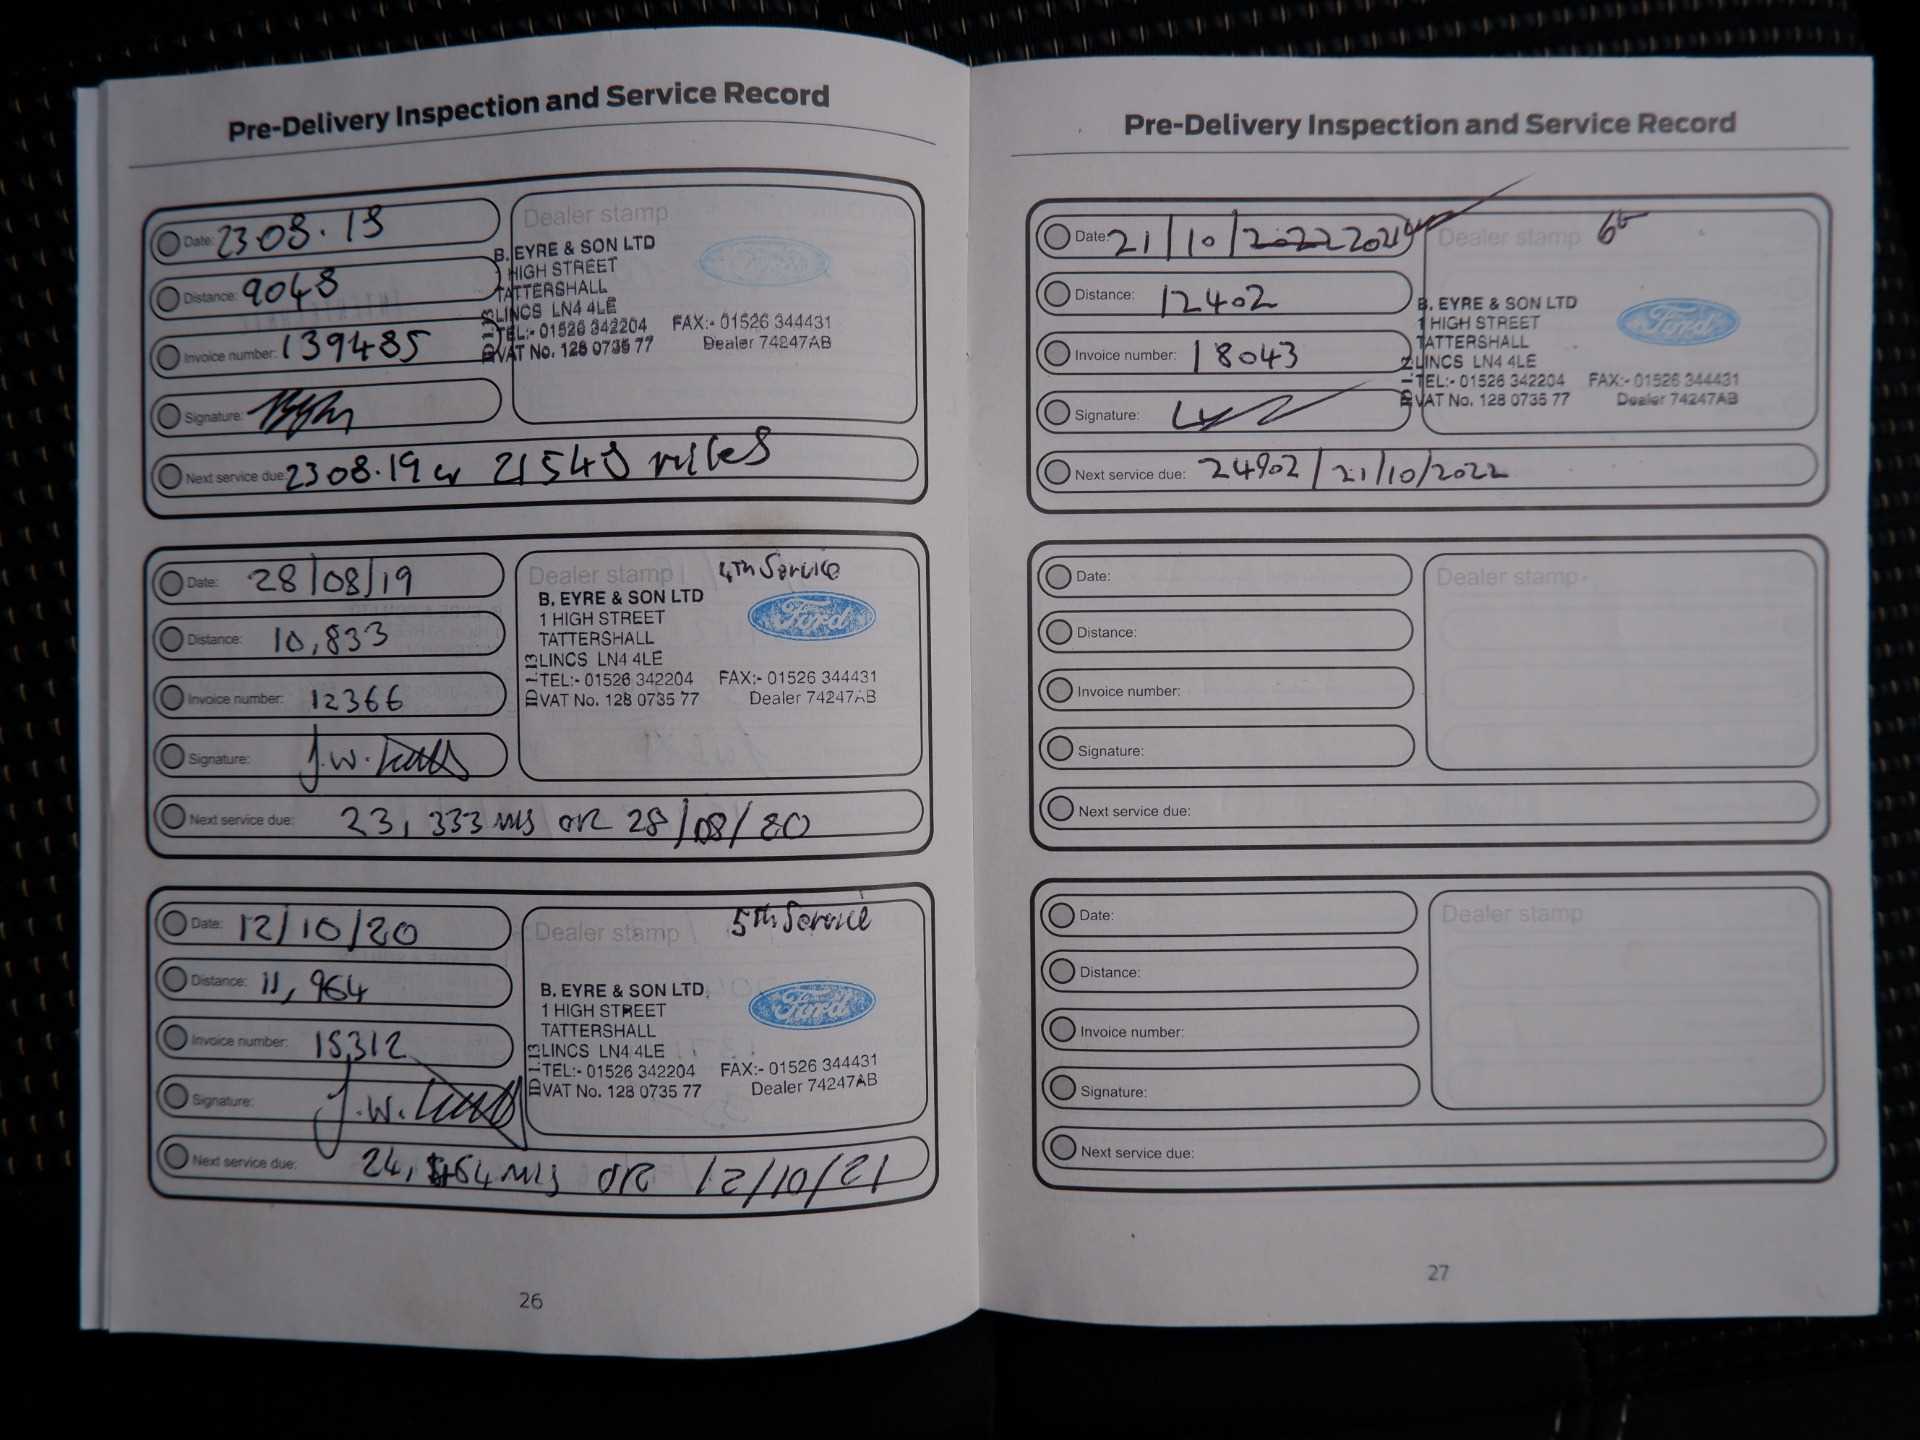 Pre-Delivery Inspection and Service Record
Date: 23 08. 18
Distance: 9048
Invoice number: 139485
Signature:
Next service due: 23 08.19 or 21548 miles
Dealer stamp
B. EYRE & SON LTD
1 HIGH STREET
TATTERSHALL
LINCS LN4 4LE
TEL:- 01526 342204 FAX:- 01526 344431
VAT No. 128 0735 77 Dealer 74247AB
Date: 28/08/19
Distance: 10,833
Invoice number: 12366
Signature: J.W.
Next service due: 23,333 mls OR 28/08/20
Dealer stamp 4th Service
B. EYRE & SON LTD
Ford
1 HIGH STREET
TATTERSHALL
LINCS LN4 4LE
TEL:- 01526 342204 FAX:- 01526 344431
VAT No. 128 0735 77 Dealer 74247AB
Date: 12/10/20
Distance: 11,964
Invoice number: 15312
Signature: J.W.
Next service due: 24,464 mls OR 12/10/21
Dealer stamp 5th Service
B. EYRE & SON LTD
Ford
1 HIGH STREET
TATTERSHALL
LINCS LN4 4LE
TEL:- 01526 342204 FAX:- 01526 344431
VAT No. 128 0735 77 Dealer 74247AB
26
Pre-Delivery Inspection and Service Record
Date: 21/10/2022 2021
Distance: 12402
Invoice number: 18043
Signature:
Next service due: 24902/21/10/2022
Dealer stamp
B. EYRE & SON LTD
Ford
1 HIGH STREET
TATTERSHALL
LINCS LN4 4LE
TEL:- 01526 342204 FAX:- 01526 344431
VAT No. 128 0735 77 Dealer 74247AB
Date:
Distance:
Invoice number:
Signature:
Next service due:
Dealer stamp
Date:
Distance:
Invoice number:
Signature:
Next service due:
Dealer stamp
27